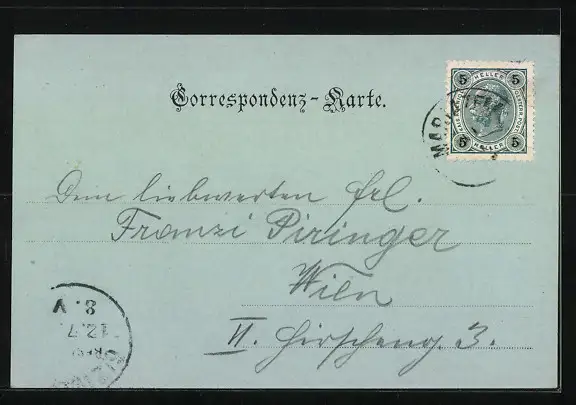 Correspondenz-Karte.
5 HELLER 5
5 HELLER 5
MARI
Dem liebwerten Frl.
Franzi Piringer
Wien
II. 3.
8. V
12.7